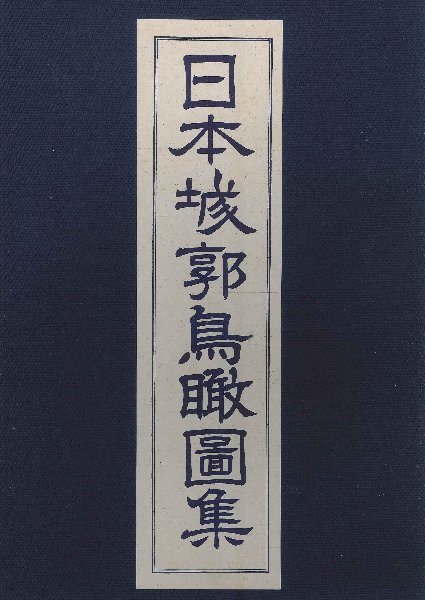 日本城郭鳥瞰圖集